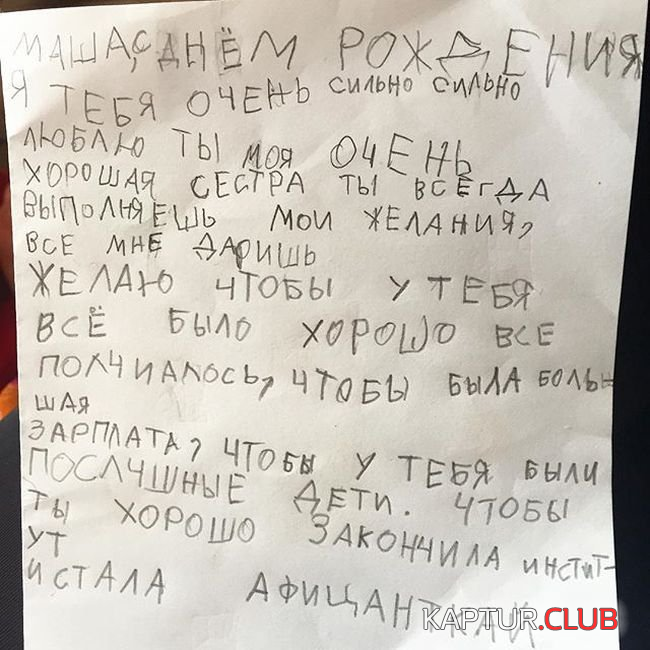 МАША, С ДНЁМ РОЖДЕНИЯ
Я ТЕБЯ ОЧЕНЬ СИЛЬНО СИЛЬНО
ЛЮБЛЮ ТЫ МОЯ ОЧЕНЬ
ХОРОШАЯ СЕСТРА ТЫ ВСЕГДА
ВЫПОЛНЯЕШЬ МОИ ЖЕЛАНИЯ,
ВСЕ МНЕ ДАРИШЬ
ЖЕЛАЮ ЧТОБЫ У ТЕБЯ
ВСЁ БЫЛО ХОРОШО ВСЕ
ПОЛЧИАЛОСЬ, ЧТОБЫ БЫЛА БОЛЬ-
ШАЯ
ЗАРПЛАТА, ЧТОБЫ У ТЕБЯ БЫЛИ
ПОСЛЧШНЫЕ ДЕТИ. ЧТОБЫ
ТЫ ХОРОШО ЗАКОНЧИЛА ИНСТИТ-
УТ
И СТАЛА АФИЦАНТКАЙ
KAPTUR.CLUB